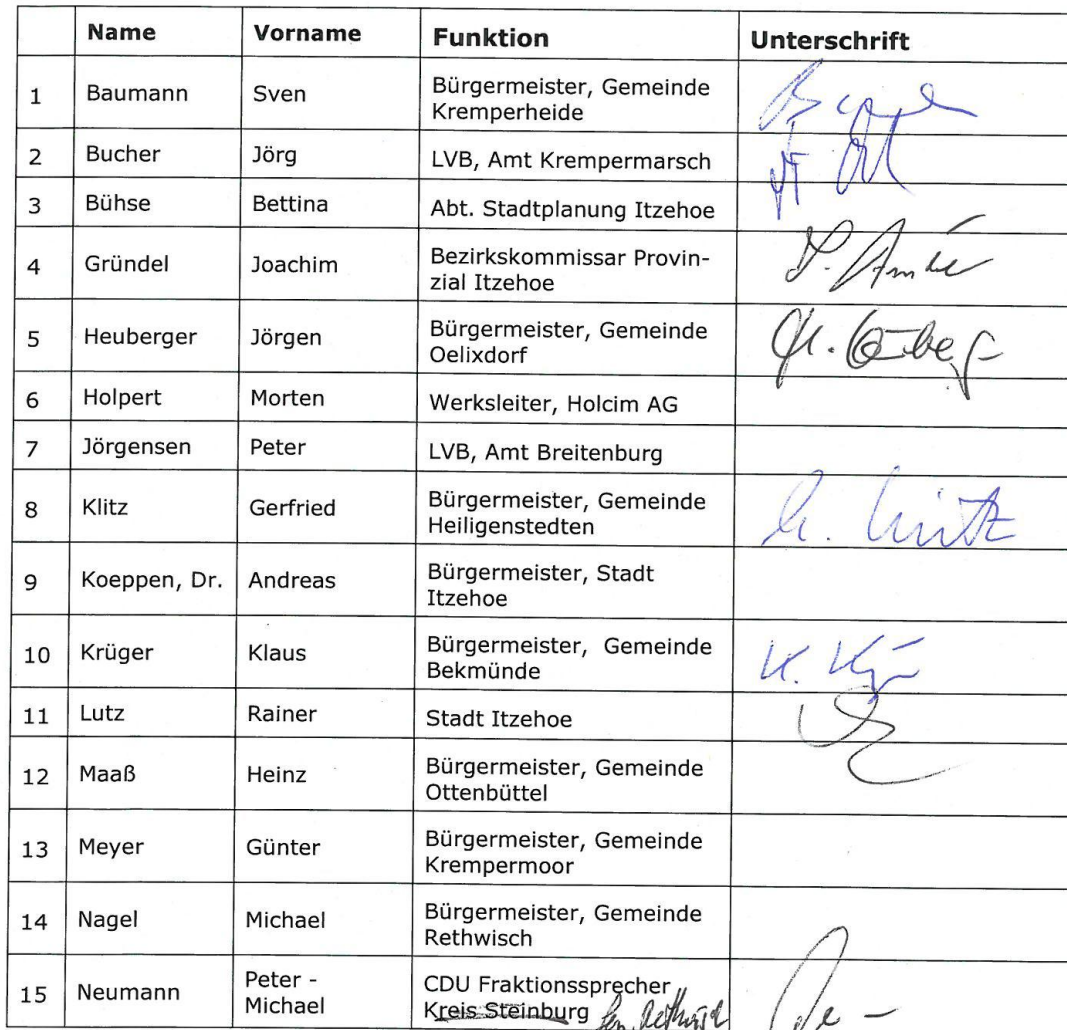 Name Vorname Funktion Unterschrift
1 Baumann Sven Bürgermeister, Gemeinde
Kremperheide
2 Bucher Jörg LVB, Amt Krempermarsch
3 Bühse Bettina Abt. Stadtplanung Itzehoe
4 Gründel Joachim Bezirkskommissar Provin-
zial Itzehoe
5 Heuberger Jörgen Bürgermeister, Gemeinde
Oelixdorf
6 Holpert Morten Werksleiter, Holcim AG
7 Jörgensen Peter LVB, Amt Breitenburg
8 Klitz Gerfried Bürgermeister, Gemeinde
Heiligenstedten
9 Koeppen, Dr. Andreas Bürgermeister, Stadt
Itzehoe
10 Krüger Klaus Bürgermeister, Gemeinde
Bekmünde
11 Lutz Rainer Stadt Itzehoe
12 Maaß Heinz Bürgermeister, Gemeinde
Ottenbüttel
13 Meyer Günter Bürgermeister, Gemeinde
Krempermoor
14 Nagel Michael Bürgermeister, Gemeinde
Rethwisch
15 Neumann Peter - CDU Fraktionssprecher
Michael Kreis Steinburg